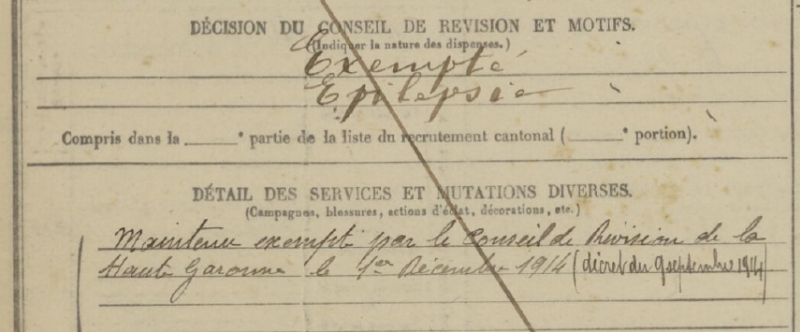 DÉCISION DU CONSEIL DE REVISION ET MOTIFS.
(Indiquer la nature des dispenses.)
Exempté
Epilepsie
Compris dans la ______e partie de la liste du recrutement cantonal (______e portion).
DÉTAIL DES SERVICES ET MUTATIONS DIVERSES.
(Campagnes, blessures, actions d'éclat, décorations, etc.)
Maintenu exempté par le Conseil de Revision de la
Haute Garonne le 1er Décembre 1914 (décret du 9 septembre 1914)